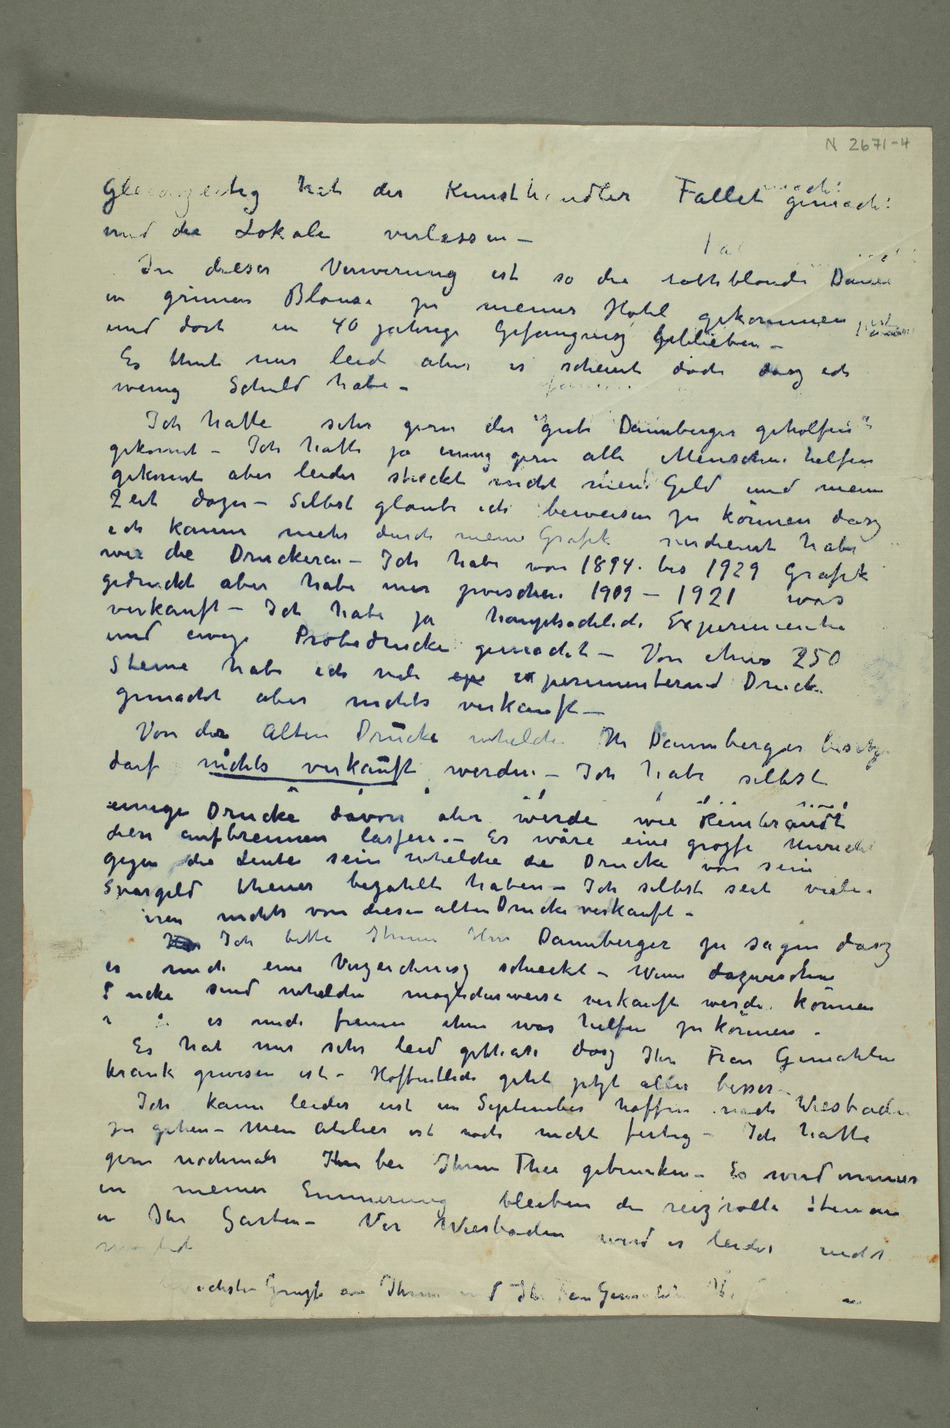 N 2671-4
hat der Kunsthändler Fallit gemacht
und die Lokale verlassen –
In dieser Verwirrung ist so die rothblonde Dame
in grünen Blouse zu meiner Hotel gekommen
und dort in 40 jahrige Gefangnisz geblieben –
Es thut mir leid aber es scheint doch dasz ich
wenig Schuld habe –
Ich hatte sehr gern der gute Dannberger geholfen
gekonnt – Ich hatte ja gern alle Menschen helfen
gekonnt aber leider streckt nicht mein Geld und meine
Zeit dazu – Selbst glaube ich beweisen zu können dasz
ich kaum mehr durch meine Grafik verdient habe
wie die Druckeren – Ich habe von 1894 bis 1929 Grafik
gedruckt aber habe nur zwischen 1909 – 1921 was
verkauft – Ich habe ja hauptsächlich Experimente
und ewige Probedrucke gemacht – Von etwa 250
Steine habe ich viele experimenterend Drucke
gemacht aber nichts verkauft –
Von der Alten Drucke whelche Hr Dannberger besitzt
darf nichts verkauft werden – Ich habe selbst
einige Drucke davon aber werde wie Rembrandt
den aufbrennen lassen – Es wäre eine grosse Unrecht
gegen die Leute sein whelche die Drucke von sein
Spargeld theuer bezahlt haben – Ich selbst seit viele
nichts von diese alten Drucke verkauft –
Ich bitte Ihnen Herr Dannberger zu sagen dasz
er mich eine Verzeichnisz schickt – Wenn dazwischen
sind whelche moglicherweise verkauft werde können
es mich freuen ihm was helfen zu können –
Es hat mir sehr leid gethan dasz Ihr Frau Gemahlin
krank gewesen ist – Hoffentlich geht jetzt alles besser –
Ich kann leider erst im September hoffen nach Wiesbaden
zu gehen – Mein Atelier ist noch nicht fertig – Ich hatte
gern nochmals bei Ihnen Thee getrunken – Es wird immer
in meiner Erinnerung bleiben die reizvolle Stunde
in Ihr Garten – Vor Wiesbaden wird es leider nicht